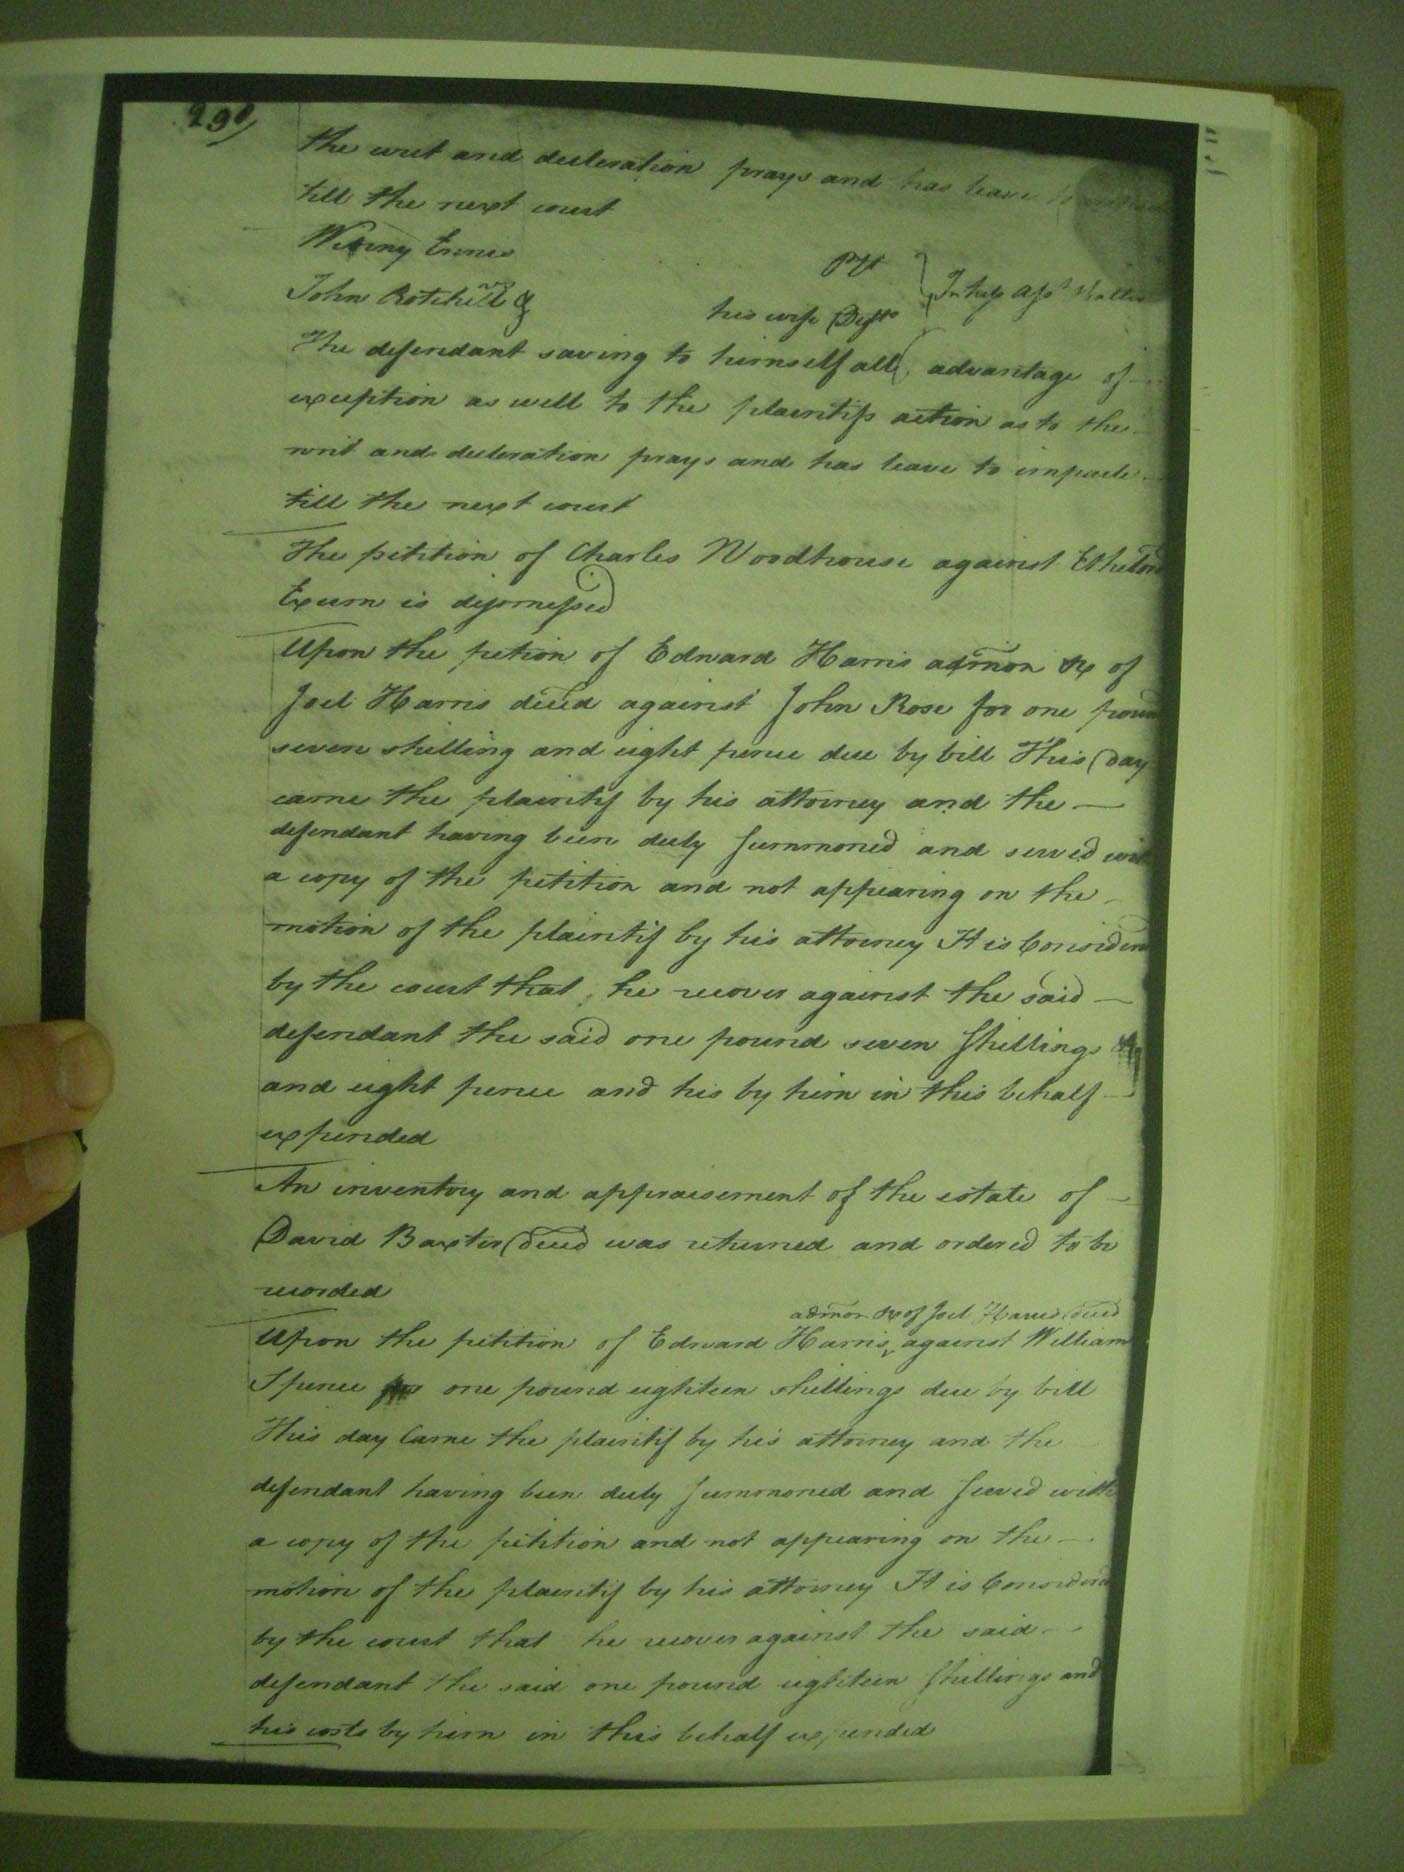 290/
the writ and declaration prays and has leave to imparle
till the next court
Winny Ennis Plt
John Rotchill & his wife Defts } In tresp Ass t Batte
The defendant saving to himself all advantage of
exception as well to the plaintifs action as to the
writ and declaration prays and has leave to imparle
till the next court
The petition of Charles Woodhouse against Etheldred
Exum is dismissed
Upon the petion of Edward Harris admor &c of
Joel Harris deced against John Rose for one pound
seven shilling and eight pence due by bill This day
came the plaintif by his attorney and the
defendant having been duly summoned and served with
a copy of the petition and not appearing on the
motion of the plaintif by his attorney It is Considered
by the court that he recover against the said
defendant the said one pound seven shillings
and eight pence and his by him in this behalf
expended
An inventory and appraisement of the estate of
David Baxter deced was returned and ordered to be
recorded
admor &c of Joel Harris deced
Upon the petition of Edward Harris ^ against William
Spence for one pound eighteen shillings due by bill
This day Came the plaintif by his attorney and the
defendant having been duly summoned and served with
a copy of the petition and not appearing on the
motion of the plaintif by his attorney It is Considered
by the court that he recover against the said
defendant the said one pound eighteen shillings and
his costs by him in this behalf expended